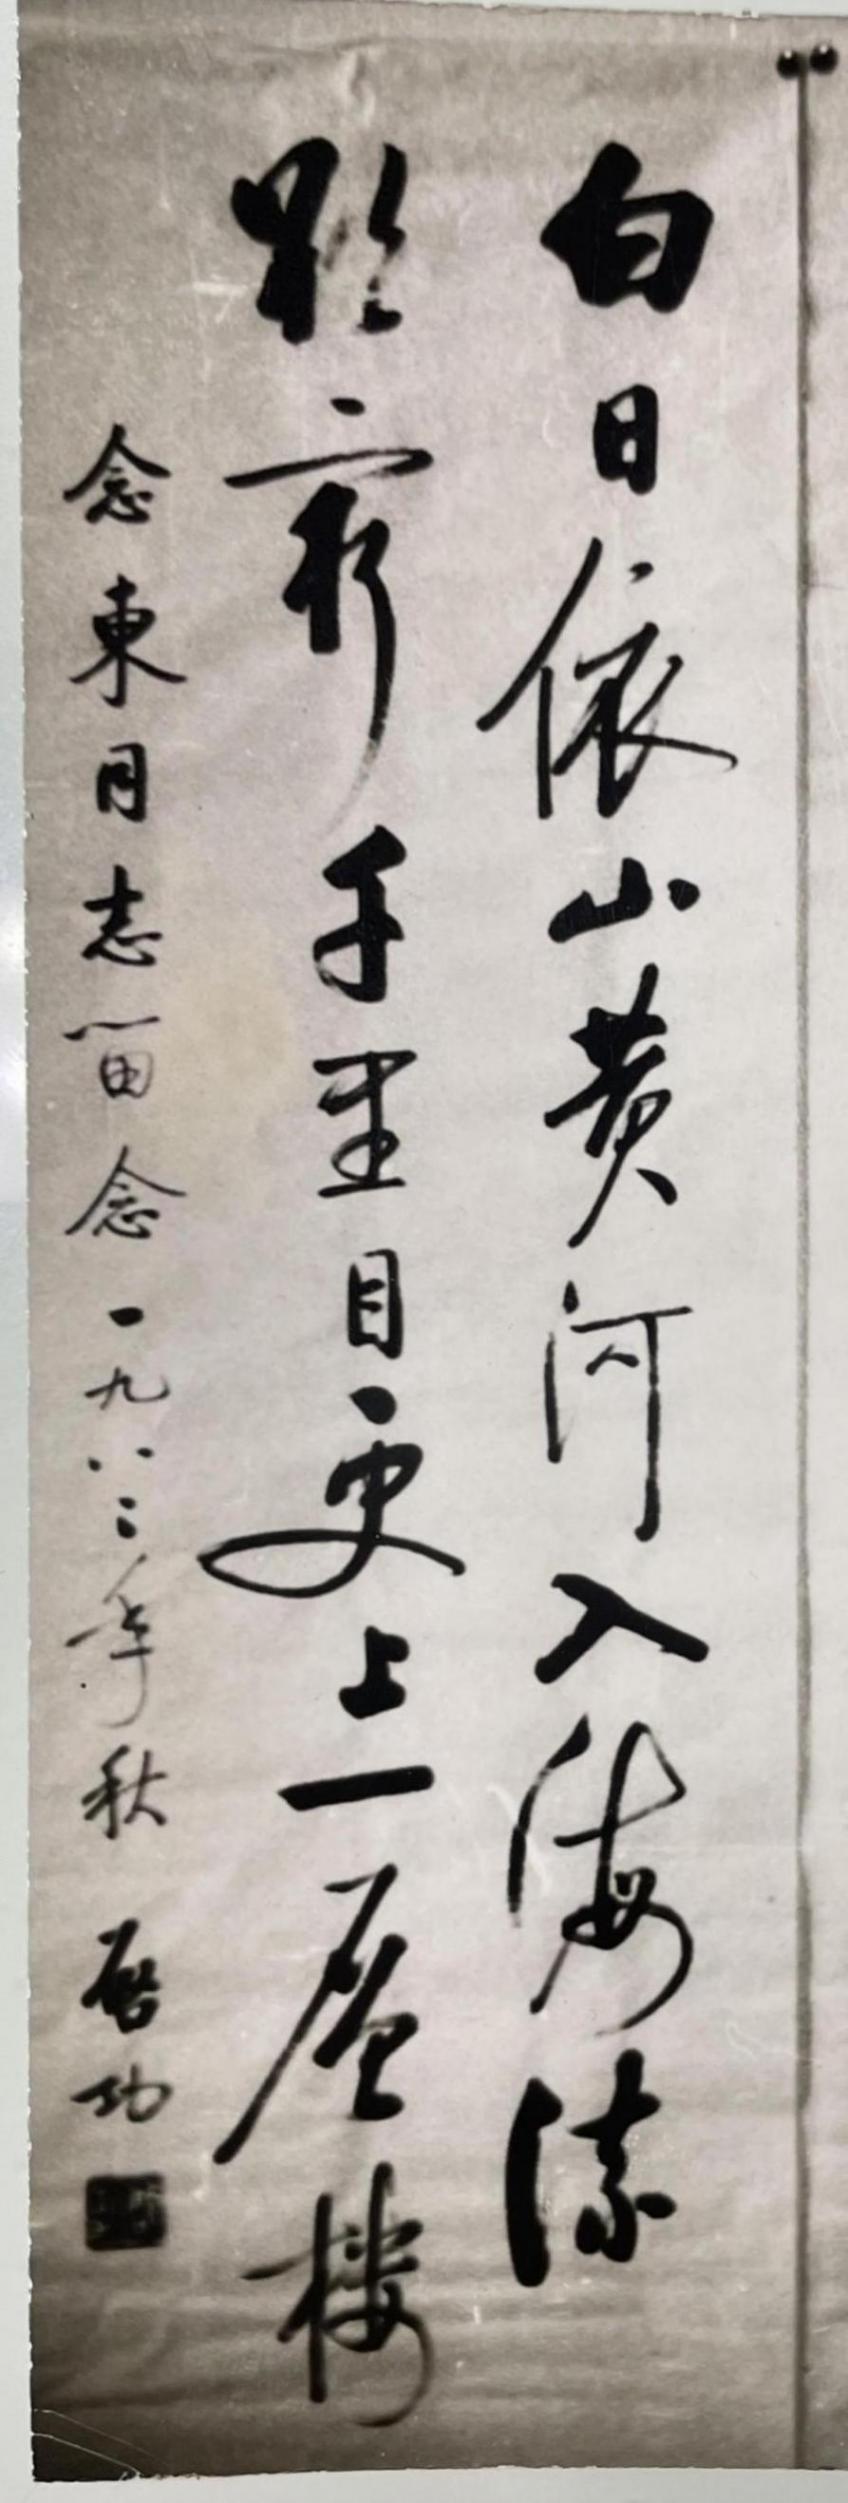 白日依山黄河入海流
欲窮千里目更上一層樓
念東同志留念一九八二年秋 启功